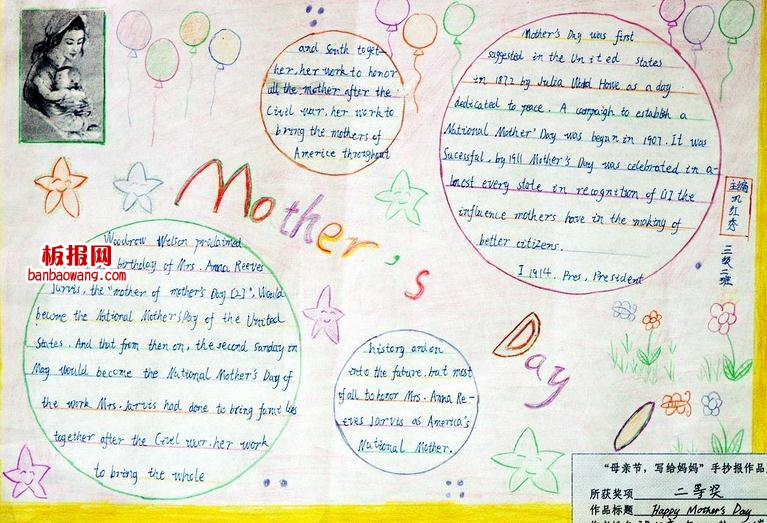 Mother's Day was first
suggested in the United states
in 1872 by Julia Wold Howe as a day
dedicated to peace. A compaign to establish a
National Mother' Day was began in 1907. It was
Sucessful, by 1911 Mother's Day was celebrated in a-
lmost every state in recognition of all the
influence mothers have in the making of
better citizens.
I 1914. Pres, President
Woodrow Wilson proclaimed
birthday of Mrs. Anna Reeves
Jarvis, the "mother of mother's Day [2]", Would
become the National Mother's Day of the United
States. And that from then on, the second sunday in
May would become the National Mother's Day of
the work Mrs. Jarvis had done to bring
together after the Civel war. her work
to bring the whole
and South toget-
her, her work to honor
all the mother after the
Civil war, her work to
bring the mothers of
Americe throughout
history and on
into the future, but most
of all to honor Mrs. Anna Re-
eves Jarvis as America's
National Mother.
Mother's
Day
主编
巩红秀
三级二班
板报网
banbaowang.com
“母亲节，写给妈妈”手抄报作品
所获奖项 二等奖
作品标题 Happy Mother's Day